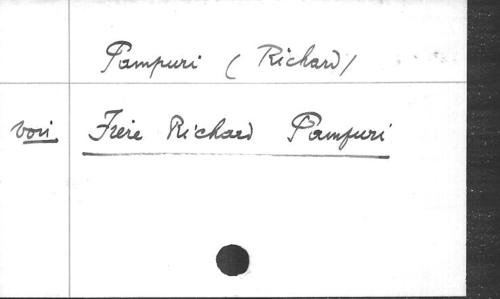 Pampuri (Richard)
voir Frère Richard Pampuri